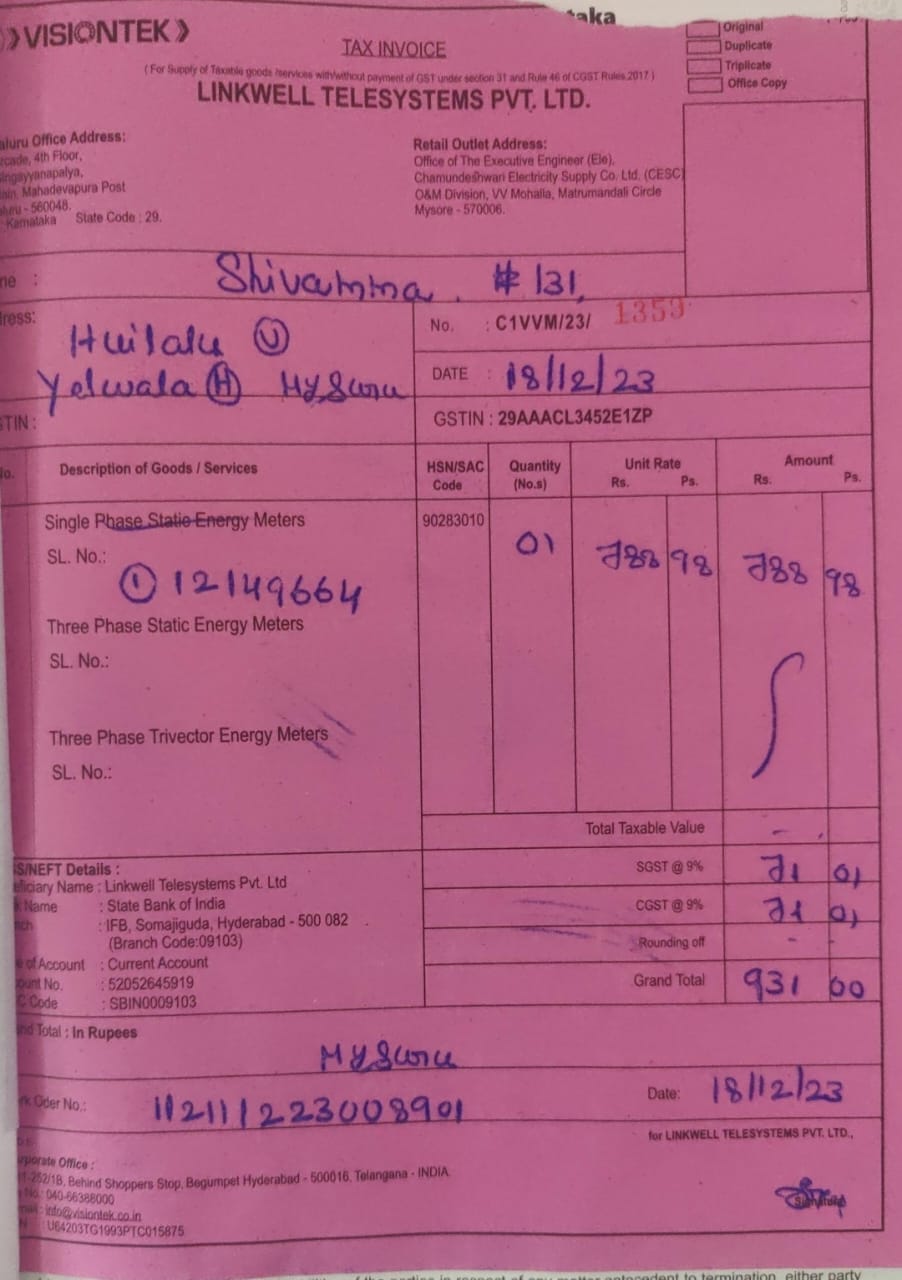 taka
VISIONTEK
TAX INVOICE
( For Supply of Taxable goods /services with/without payment of GST under section 31 and Rule 46 of CGST Rules 2017 )
LINKWELL TELESYSTEMS PVT. LTD.
Original
Duplicate
Triplicate
Office Copy
aluru Office Address:
rcade, 4th Floor,
ngayyanapalya,
ain, Mahadevapura Post
uru - 560048.
Karnataka State Code : 29.
Retail Outlet Address:
Office of The Executive Engineer (Ele),
Chamundeshwari Electricity Supply Co. Ltd. (CESC)
O&M Division, VV Mohalla, Matrumandali Circle
Mysore - 570006.
me : Shivamma. # 131,
ress: Huilalu (V)
Yelwala (H) Mysuru
STIN :
No. : C1VVM/23/ 1359
DATE : 18/12/23
GSTIN : 29AAACL3452E1ZP
lo. Description of Goods / Services HSN/SAC Code Quantity (No.s) Unit Rate Rs. Ps. Amount Rs. Ps.
Single Phase Static Energy Meters 90283010 01 788 98 788 98
SL. No.:
① 12149664
Three Phase Static Energy Meters
SL. No.:
Three Phase Trivector Energy Meters
SL. No.:
Total Taxable Value -
SGST @ 9% 71 01
CGST @ 9% 71 01
Rounding off - -
Grand Total 931 00
S/NEFT Details :
eficiary Name : Linkwell Telesystems Pvt. Ltd
k Name : State Bank of India
nch : IFB, Somajiguda, Hyderabad - 500 082
(Branch Code:09103)
e of Account : Current Account
ount No. : 52052645919
C Code : SBIN0009103
nd Total : In Rupees
Mysuru
rk Oder No.: 112111223008901
Date: 18/12/23
for LINKWELL TELESYSTEMS PVT. LTD.,
rporate Office :
1-252/1B, Behind Shoppers Stop, Begumpet Hyderabad - 500016. Telangana - INDIA
No.: 040-66388000
mail : info@visiontek.co.in
N : U64203TG1993PTC015875
Signature
antecedent to termination, either party